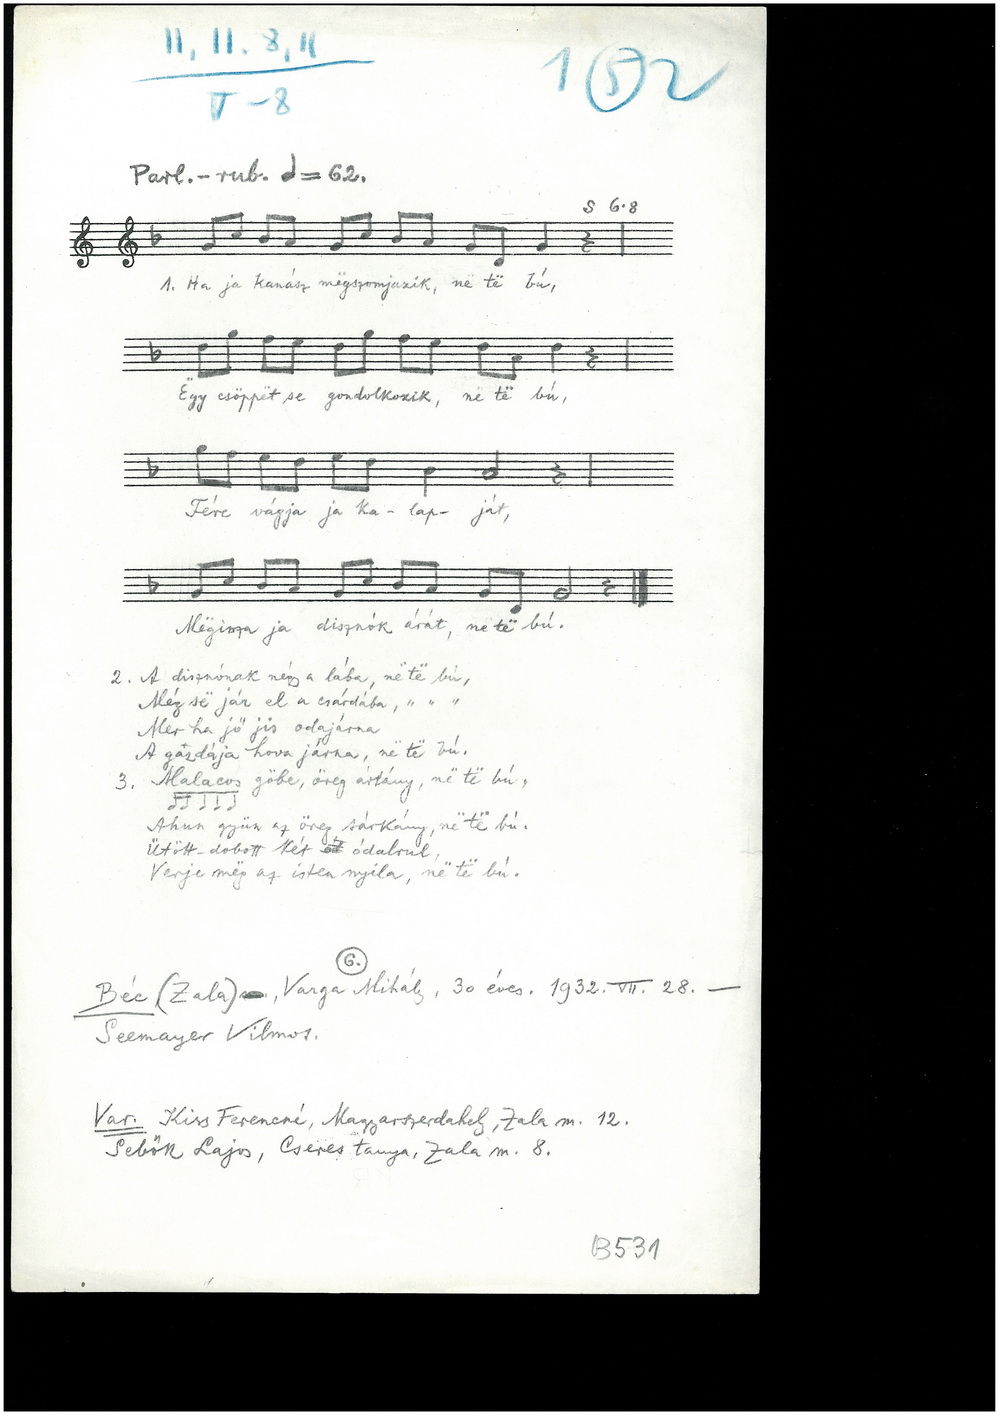 11, 11. 8, 11
V - 8
1 (5) 2
Parl.-rub. ♩= 62.
S 6·8
1. Ha ja kanász mëgszomjazik, në të bú,
Ëgy csöppët se gondolkozik, në të bú,
Fére vágja ja ka - lap - ját,
Mëgissza ja disznók árát, në të bú.
2. A disznónak négy a lába, në të bú,
Még së jár el a csárdába, " " "
Mer ha jő jis odajárna
A gazdája hova járna, në të bú.
3. Malacos göbe, öreg ártány, në të bú,
Ahun gyün az öreg sárkány, në të bú.
Ütött-dobott két ódalrul,
Verje mëg az isten nyila, në të bú.
6.
Béc (Zala), Varga Mihály, 30 éves. 1932. VII. 28. —
Seemayer Vilmos.
Var. Kiss Ferencné, Magyarszerdahely, Zala m. 12.
Sebők Lajos, Cseres tanya, Zala m. 8.
B531